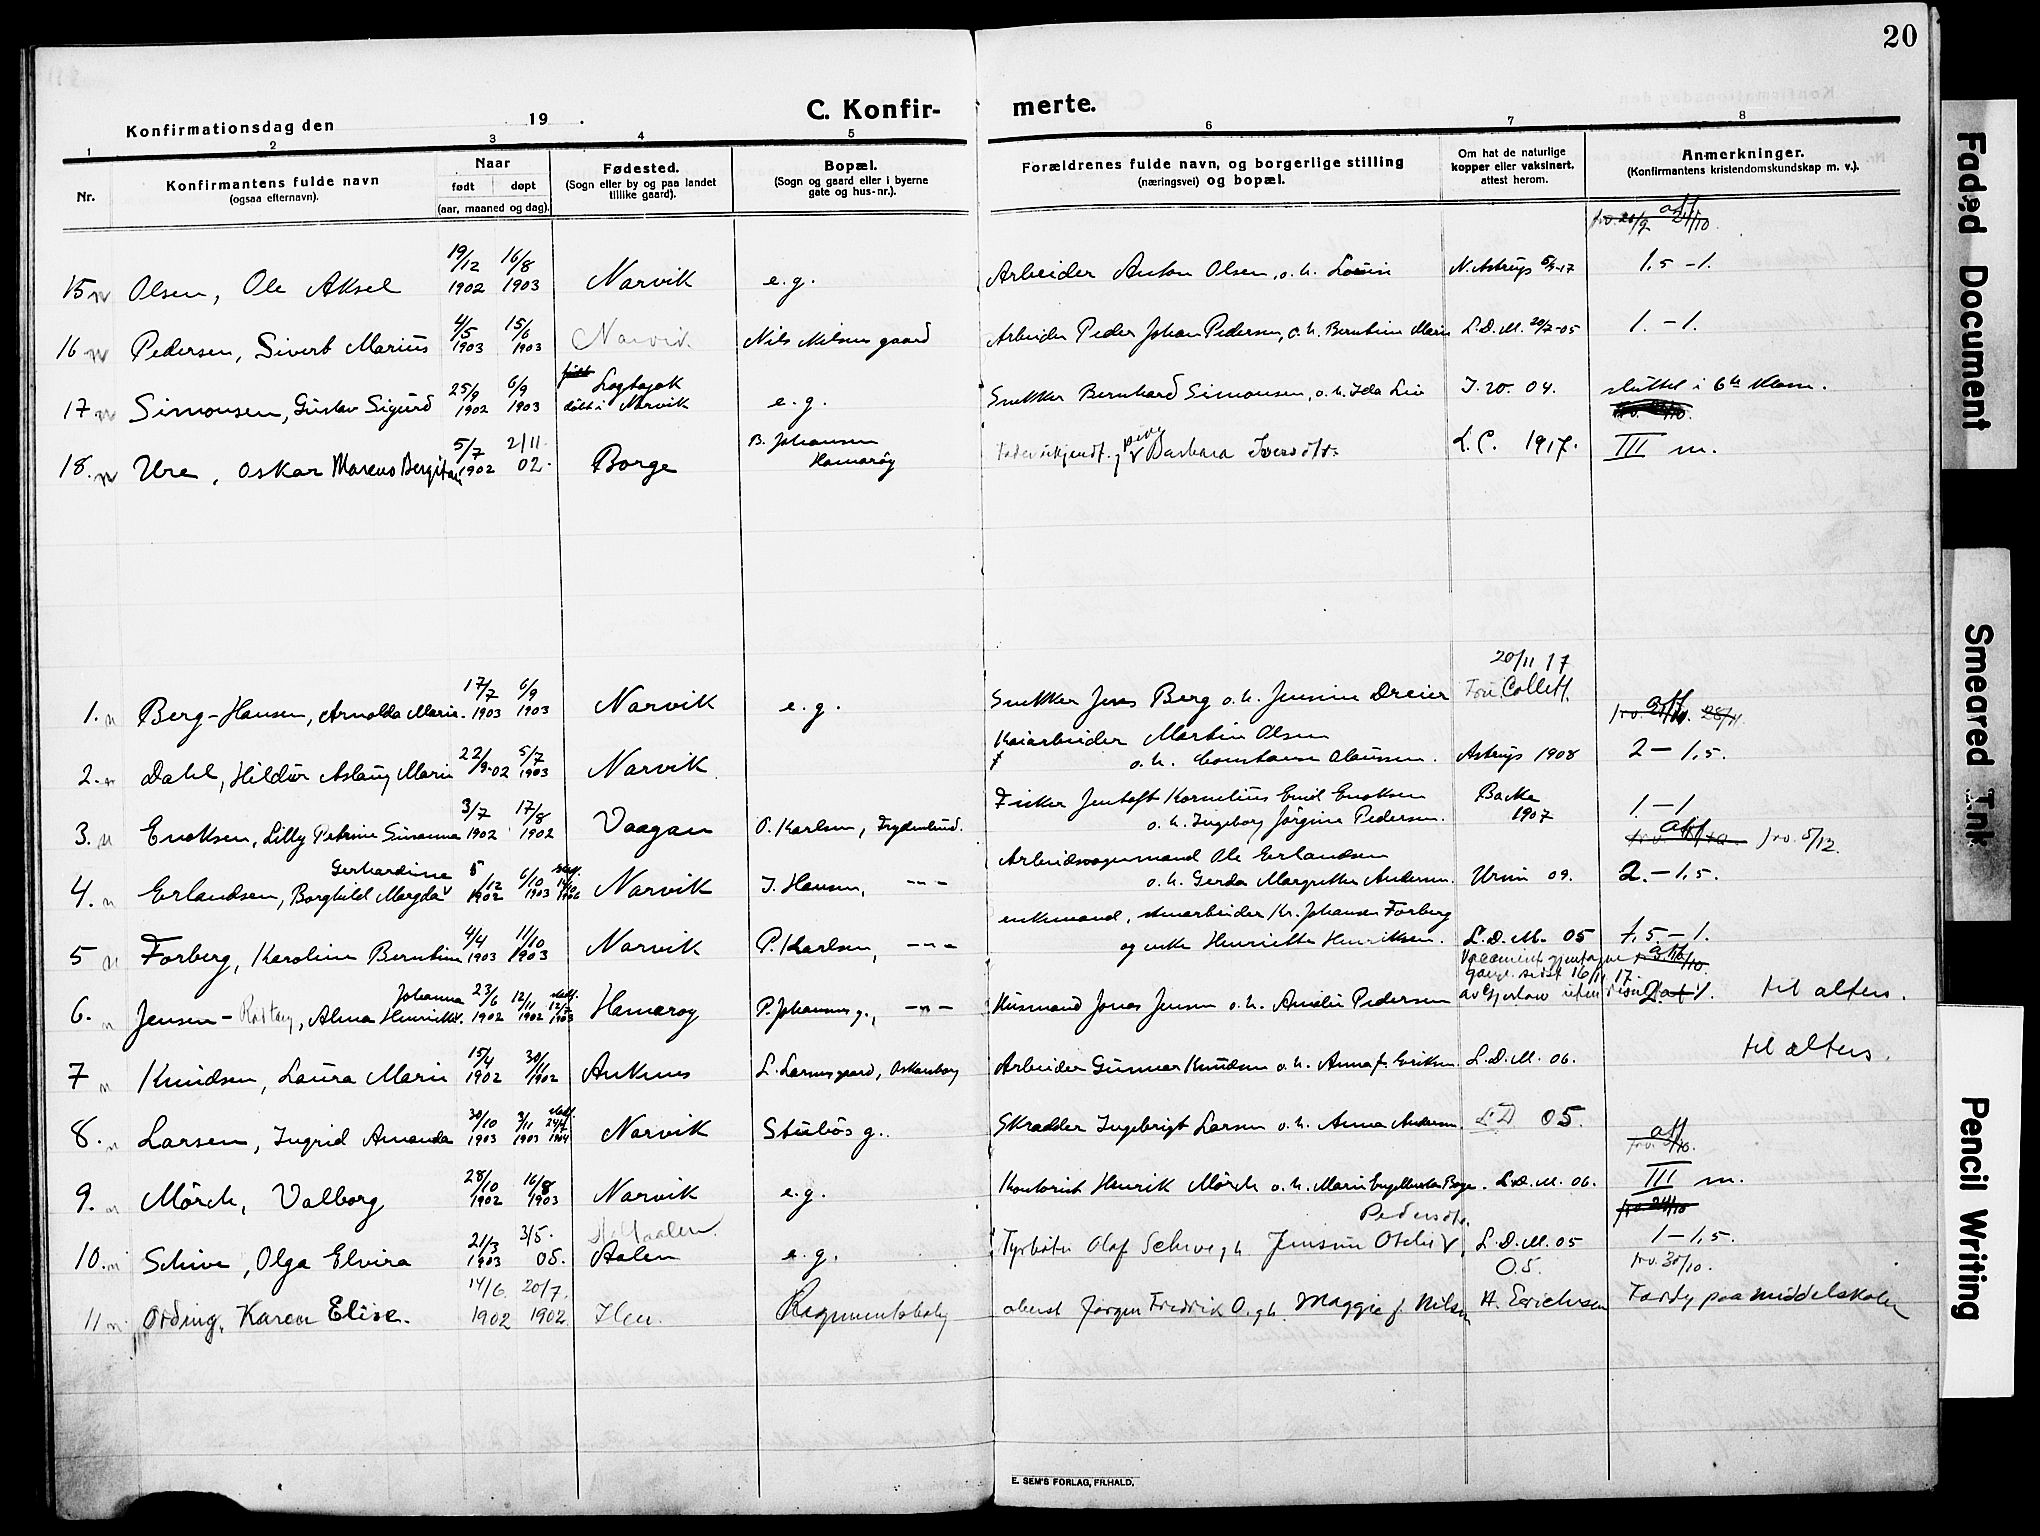 20
C. Konfir- merte.
Konfirmationsdag den 19 .
1 2 3 4 5 6 7 8
Nr.
Konfirmantens fulde navn
(ogsaa efternavn).
Naar
født døpt
(aar, maaned og dag).
Fødested.
(Sogn eller by og paa landet
tillike gaard).
Bopæl.
(Sogn og gaard eller i byerne
gate og hus-nr.).
Forældrenes fulde navn, og borgerlige stilling
(næringsvei) og bopæl.
Om hat de naturlige
kopper eller vaksinert,
attest herom.
Anmerkninger.
(Konfirmantens kristendomskundskap m. v.).
15 Olsen, Ole Aksel 19/12 1902 16/8 1903 Narvik e.g. Arbeider Anton Olsen, o.h. Lovise N. Astrup 1,5 - 1.
16 Pedersen, Sivert Marius 4/5 1903 15/6 1903 Narvik Nils Nilsens gaard Arbeider Peder Johan Pedersen, o.h. Berntine Marie L.D.M. 20/7-05 1. - 1.
17 Simonsen, Gustav Sigurd 25/9 1902 6/9 1903 døbt i Narvik e.g. Snekker Bernhard Simonsen, o.h. Ida Liv J. 20. 04. sluttet i 6te Klasse.
18. Ure, Oskar Marcus 5/7 1902 2/11 02. Borge B. Johansen Hamarøy pige Barbara Iversdtr. L.C. 1917. III m.
1. Berg-Hansen, Arnolda Marie 17/7 1903 6/9 1903 Narvik e.g. Snekker Jens Berg o.h. Jensine Dreier 20/11 17 Collett.
2. Dahl, Hildur Aslaug Marie 22/9-02 5/7 1903 Narvik Kaiarbeider Martin Olsen
o.h. Constanse Clausen. Astrup 1908 2 - 1,5.
3. Enoksen, Lilly Petrine Susanna 3/7 1902 17/8 1902 Vaagan O. Karlsen, Frydenlund. Fisker Jentoft Kornelius Emil Enoksen
o.h. Ingeborg Jørgine Pedersen. Backe 1907 1 - 1
4. Erlandsen, Borghild Magda Gerhardine 5/12 1902 6/10 1903 Narvik J. Hansen, -"- Ole Erlandsen
o.h. Gerda Margrethe Andersen. Ursin 09. 2. - 1,5. 5/12.
5 Forberg, Karoline Berntine 4/4 1903 11/10 1903 Narvik P. Karlsen, -"- enkemand, Kr. Johansen Forberg
og enke Henriette Henriksen. L.D.M. 05 1,5 - 1.
6. Jensen - Alma Henriette Johanna 23/6 1902 12/11 1902 Hamarøy P. Johansens g., -"- Husmand Jonas Jensen o.h. Amalie Pedersen 16/11 17. til alters.
7 Knudsen, Laura Marie 15/4 1902 30/11 1902 Ankenes L. Larsensgaard, Oskarsborg Arbeider Gunnar Knudsen o.h. Anna f. Eriksen. L.D.M. 06. til alters.
8. Larsen, Ingrid Amanda 30/10 1903 3/11 1903 Narvik Stubøs g.. Skradder Ingebrigt Larsen o.h. Anna Andersen. L.D. 05.
9. Mörch, Valborg 28/10 1902 16/8 1903 Narvik e.g. Kontorist Henrik Mörch o.h. Marie L.D.M. 06. III m.
10. Schive, Olga Elvira 21/3 1903 3/5. 05. Aalen e.g. Fyrbøter Olaf Schive, g.h. Jensine Pedersdtr. L.D.M. 05 1 - 1,5.
11 Ording, Karen Elise. 14/6. 1902 20/7. 1902. Hen. oberst Jørgen Fredrik O. g.h. Maggie f. Nilsen O.S. H. Erichsen 30/10. Færdig paa middelskolen
E. SEM'S FORLAG, FR.HALD.
Faded Document
Smeared Ink
Pencil Writing